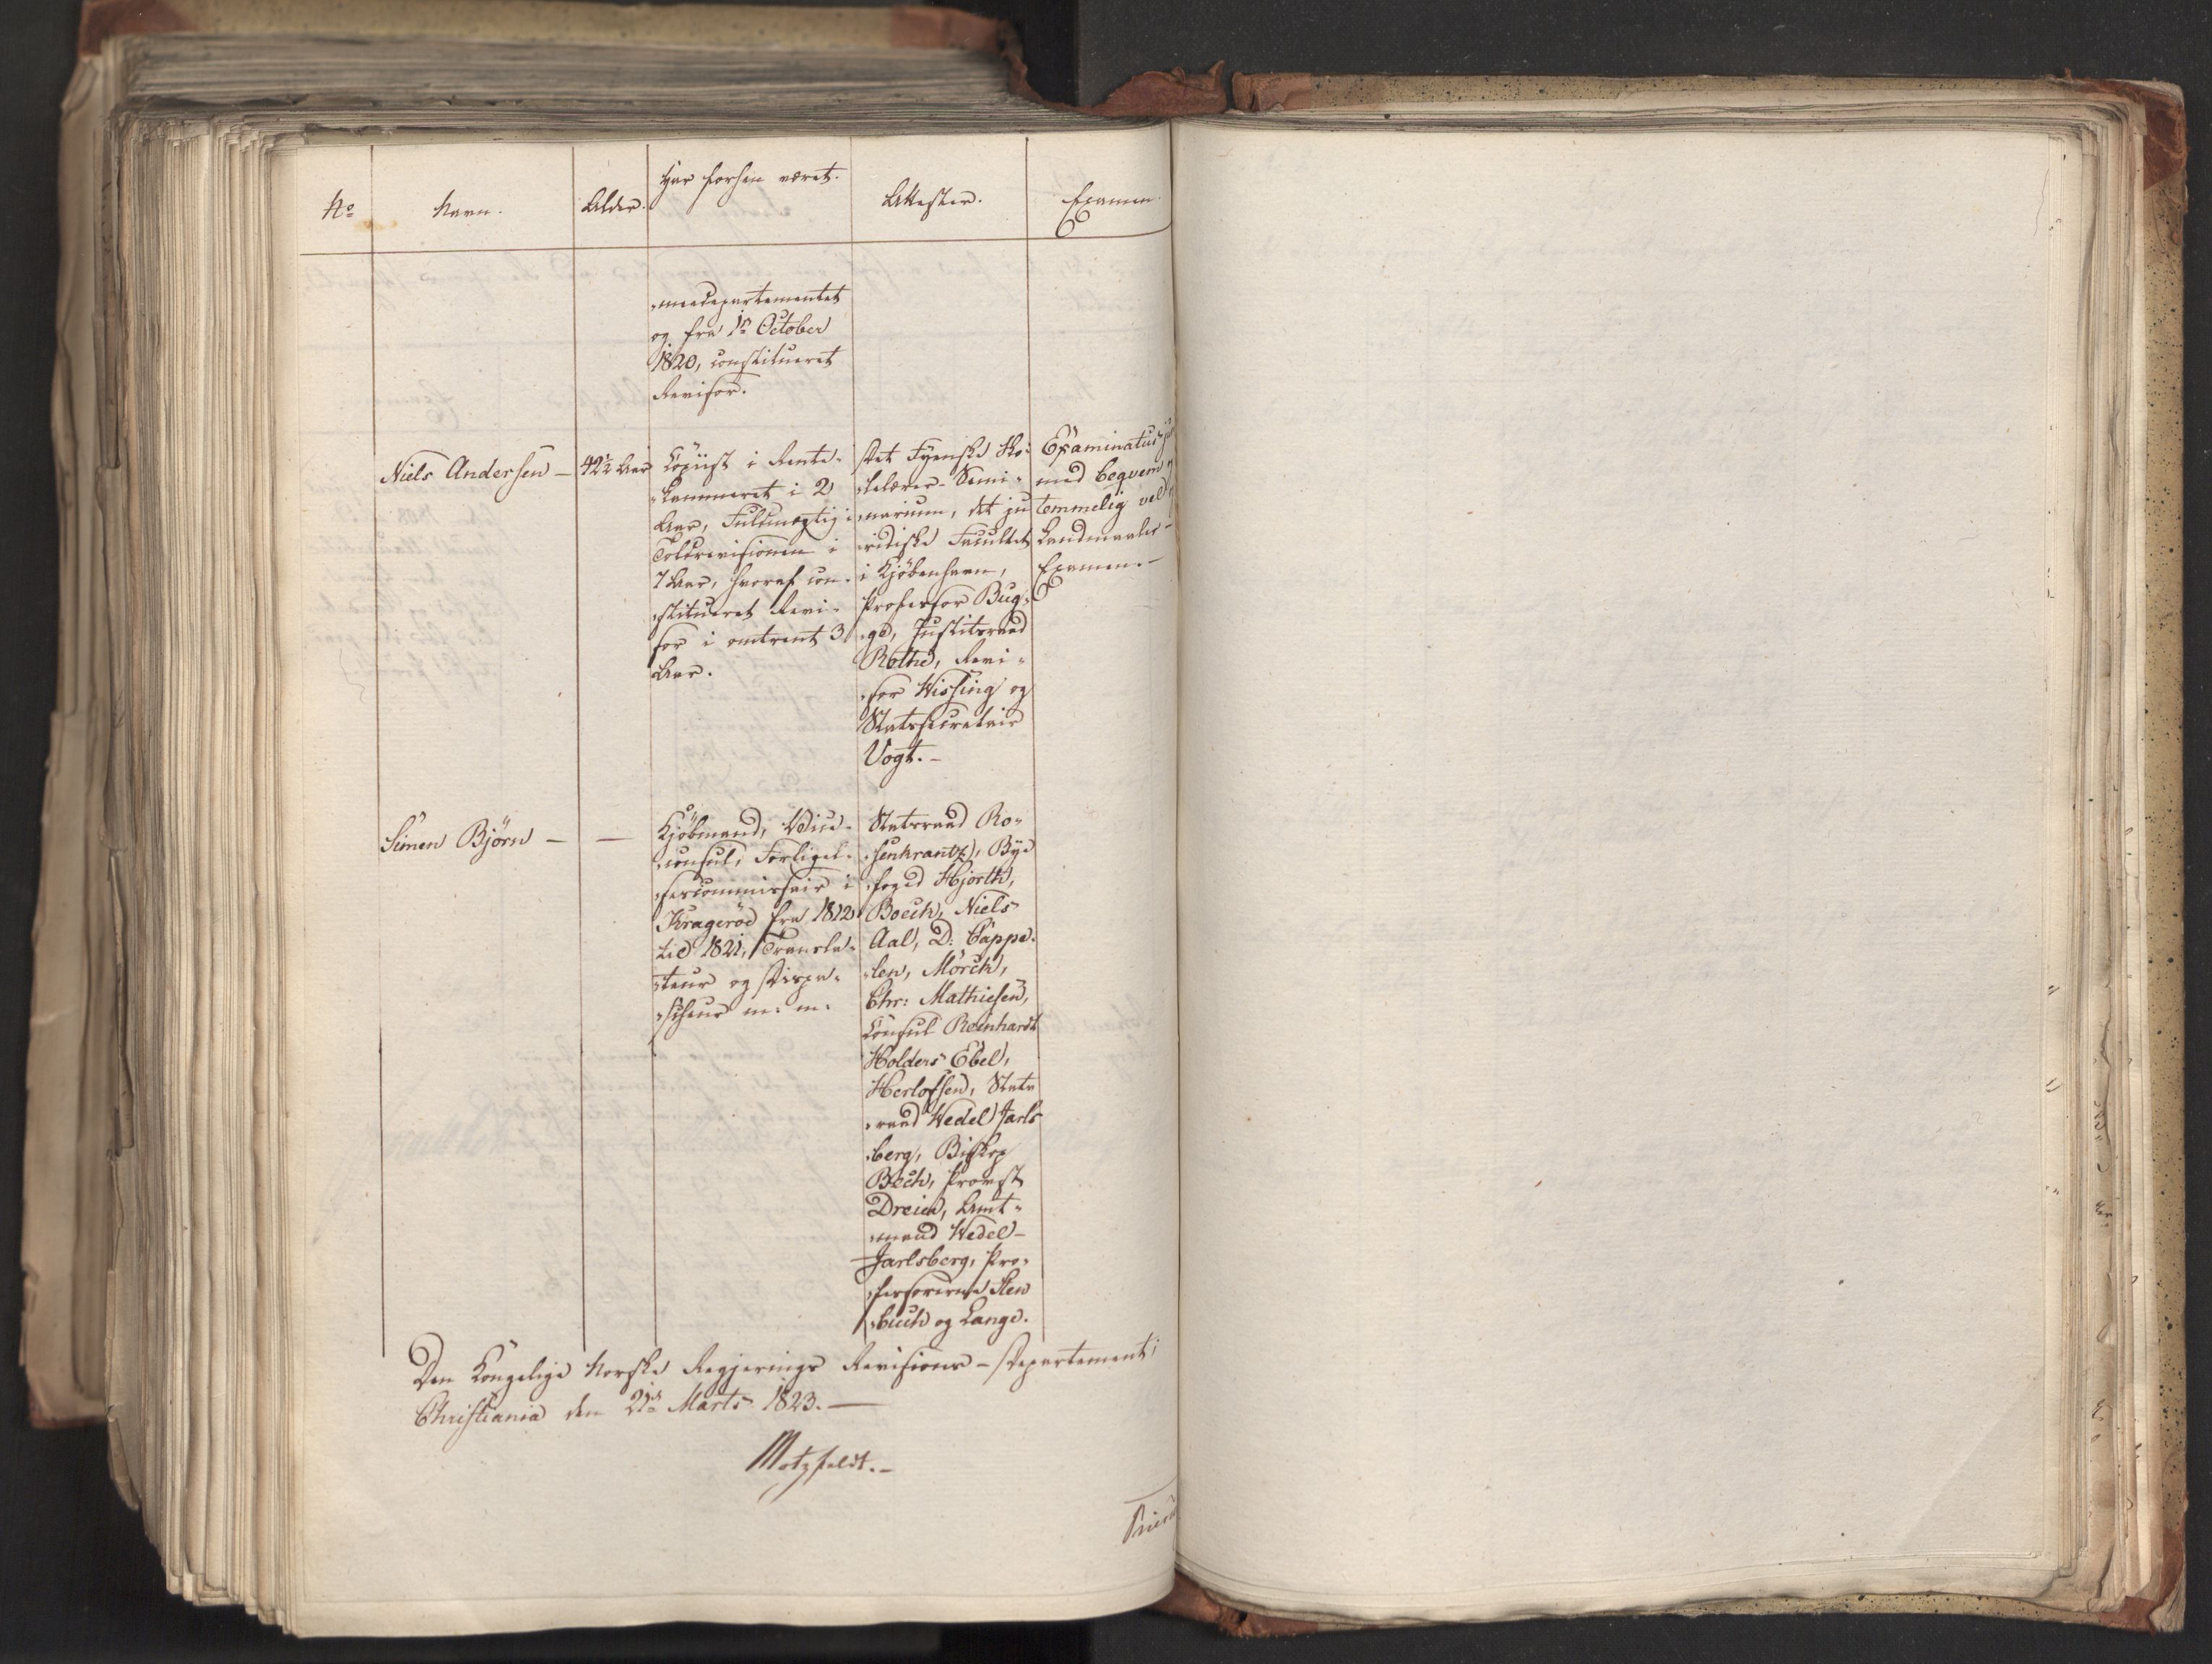 No
Navn.
Alder.
Har forhen været.
Attester.
Examen.
„meedepartementet
og fra 1ste October
1820, constitueret
Revisor.
Niels Andersen –
42½ Aar
Copiist i Rente-
„kammeret i 2
Aar, Fuldmægtig i
Toldrevisionen i
7 Aar, hvoraf con-
„stitueret Revi-
sor i omtrent 3
Aar.
Det Fyenske Sko-
„lelærer-Semi-
„narium, det ju
„ridiske Facultet
i Kjøbenhavn,
Professor Bug-
„ge, Justitsraad
Rothe, Revi-
„sor Wissing og
Statssecretair
Vogt. –
Examinatus jur
med beqvem
temmelig vel
Landmaaler-
Examen. –
Simen Björn –
–
Kjøbmand, Vice-
„consul, Forligel-
„sescommissair i
Kragerøe fra 1812
til 1821, Transla-
„teur og Dispa-
„scheur m: m:
Statsraad Ro-
„senkrantz, Bye
„foged Hjorth,
Boeck, Niels
Aal, D: Cappe-
„len, Mörch,
Chr: Mathiesen,
Consul Reinhardt
Holders Ebel,
Herlofsen, Stats
„raad Wedel Jarls
„berg, Biskop
Bech, Provst
Dreier, Amt-
„mand Wedel-
Jarlsberg, Pro-
„fessorerne Sten
„buch og Lange.
Den Kongelige Norske Regjerings Revisions-Departement i
Christiania den 21de Marts 1823. –
Motzfeldt. –